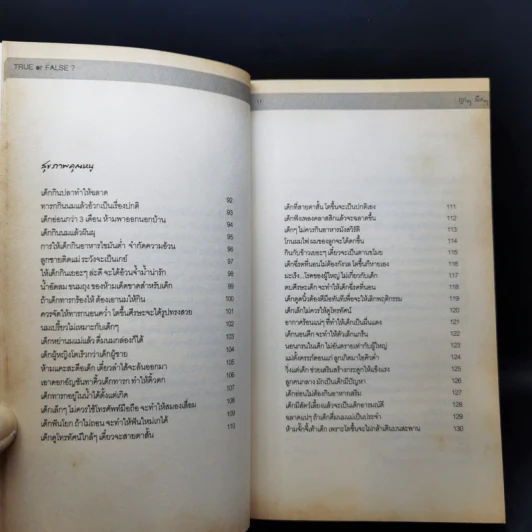 TRUE or FALSE ?
สุขภาพคุณหนู
เด็กกินปลาทำให้ฉลาด 92
ทารกกินนมแล้วอ้วกเป็นเรื่องปกติ 93
เด็กอ่อนกว่า 3 เดือน ห้ามพาออกนอกบ้าน 94
เด็กกินนมแล้วฟันผุ 95
การให้เด็กกินอาหารไขมันต่ำ จำกัดความอ้วน 96
ลูกชายติดแม่ ระวังจะเป็นเกย์ 97
ให้เด็กกินเยอะๆ ล่ะดี จะได้อ้วนจ้ำม่ำน่ารัก 98
น้ำอัดลม ขนมถุง ของห้ามเด็ดขาดสำหรับเด็ก 99
ถ้าเด็กทารกร้องไห้ ต้องเอานมให้กิน 100
ควรจัดให้ทารกนอนคว่ำ โตขึ้นศีรษะจะได้รูปทรงสวย 101
นมเปรี้ยวไม่เหมาะกับเด็กๆ 102
เด็กหย่านมแม่แล้ว ดื่มนมกล่องก็ได้ 103
เด็กผู้หญิงโตเร็วกว่าเด็กผู้ชาย 104
ห้ามแคะสะดือเด็ก เดี๋ยวลำไส้จะล้นออกมา 105
เอาดอกอัญชันทาคิ้วเด็กทารก ทำให้คิ้วดก 106
เด็กทารกอยู่ในน้ำได้ตั้งแต่เกิด 107
เด็กเล็กๆ ไม่ควรใช้โทรศัพท์มือถือ จะทำให้สมองเสื่อม 108
เด็กฟันโยก ถ้าไม่ถอน จะทำให้ฟันใหม่เกได้ 109
เด็กดูโทรทัศน์ใกล้ๆ เดี๋ยวจะสายตาสั้น 110
11
เด็กที่สายตาสั้น โตขึ้นจะเป็นปกติเอง 111
เด็กฟังเพลงคลาสสิกแล้วจะฉลาดขึ้น 112
เด็กๆ ไม่ควรกินอาหารมังสวิรัติ 113
โกนผมไฟ ผมของลูกจะได้ดกขึ้น 114
กินกับข้าวเยอะๆ เดี๋ยวจะเป็นตานขโมย 115
เด็กฉี่รดที่นอนไม่ต้องกังวล โตขึ้นก็หายเอง 116
มะเร็ง...โรคของผู้ใหญ่ ไม่เกี่ยวกับเด็ก 117
ตบศีรษะเด็ก จะทำให้เด็กฉี่รดที่นอน 118
เด็กดูดนิ้วต้องตีมือทันทีเพื่อจะให้เลิกพฤติกรรม 119
เด็กเล็กไม่ควรให้ดูโทรทัศน์ 120
อากาศร้อนแน่ๆ ที่ทำให้เด็กเป็นผื่นแดง 121
เด็กนอนดึก จะทำให้ตัวเล็กแกร็น 122
นอนกรนในเด็ก ไม่อันตรายเท่ากับผู้ใหญ่ 123
แม่ตั้งครรภ์ตอนแก่ ลูกเกิดมาไอคิวต่ำ 124
วิ่งแต่เด็ก ช่วยเสริมสร้างกระดูกให้แข็งแรง 125
ลูกคนกลาง มักเป็นเด็กมีปัญหา 126
เด็กอ่อนไม่ต้องกินอาหารเสริม 127
เด็กมีสัตว์เลี้ยงแล้วจะเป็นเด็กอารมณ์ดี 128
ฉลาดแน่ๆ ถ้าเด็กดื่มนมแม่เป็นประจำ 129
ห้ามจั๊กจี้เท้าเด็ก เพราะโตขึ้นจะไม่กล้าเดินบนสะพาน 130